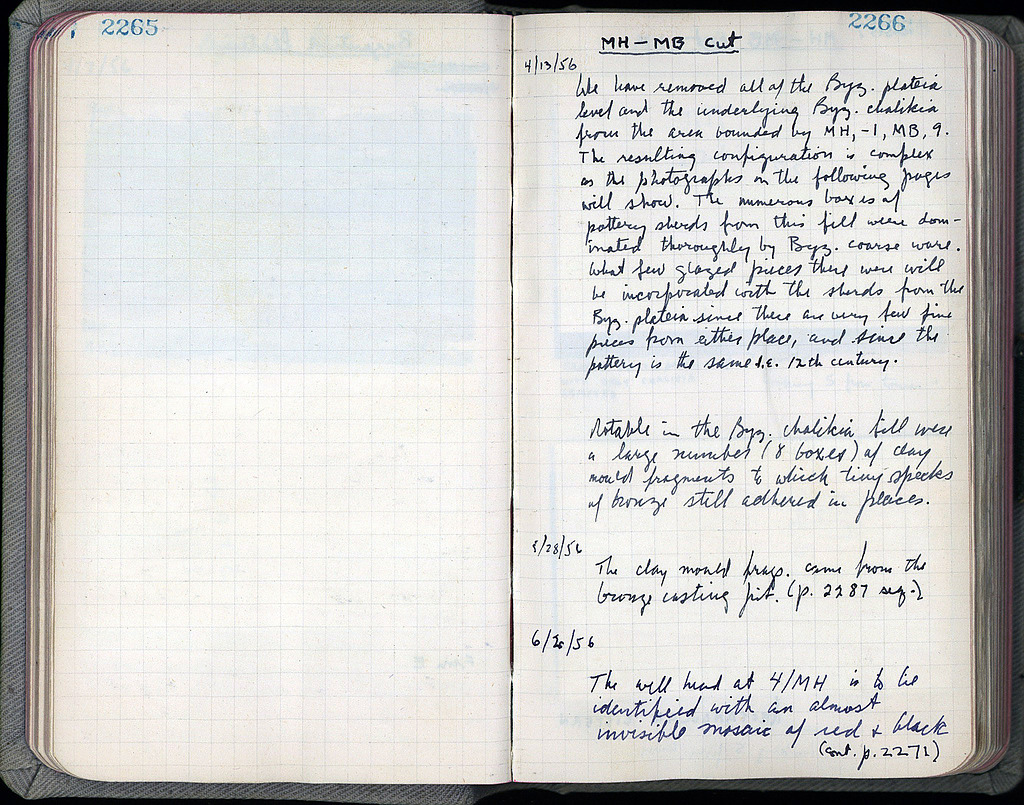 2265
2266
MH-MB Cut
4/13/56
We have removed all of the Byz. plateia
level and the underlying Byz. chalikia
from the area bounded by MH, -1, MB, 9.
The resulting configuration is complex
as the photographs on the following pages
will show. The numerous boxes of
pottery sherds from this fill were dom-
inated thoroughly by Byz. coarse ware.
What few glazed pieces there were will
be incorporated with the sherds from the
Byz. plateia since there are very few fine
pieces from either place, and since the
pottery is the same i.e. 12th century.
Notable in the Byz. chalikia fill were
a large number (8 boxes) of clay
mould fragments to which tiny specks
of bronze still adhered in places.
/28/56
The clay mould frags. came from the
bronze casting pit. (p. 2287 seq.)
6/2/56
The well head at 4/MH is to be
identified with an almost
invisible mosaic of red + black
(cont. p. 2271)